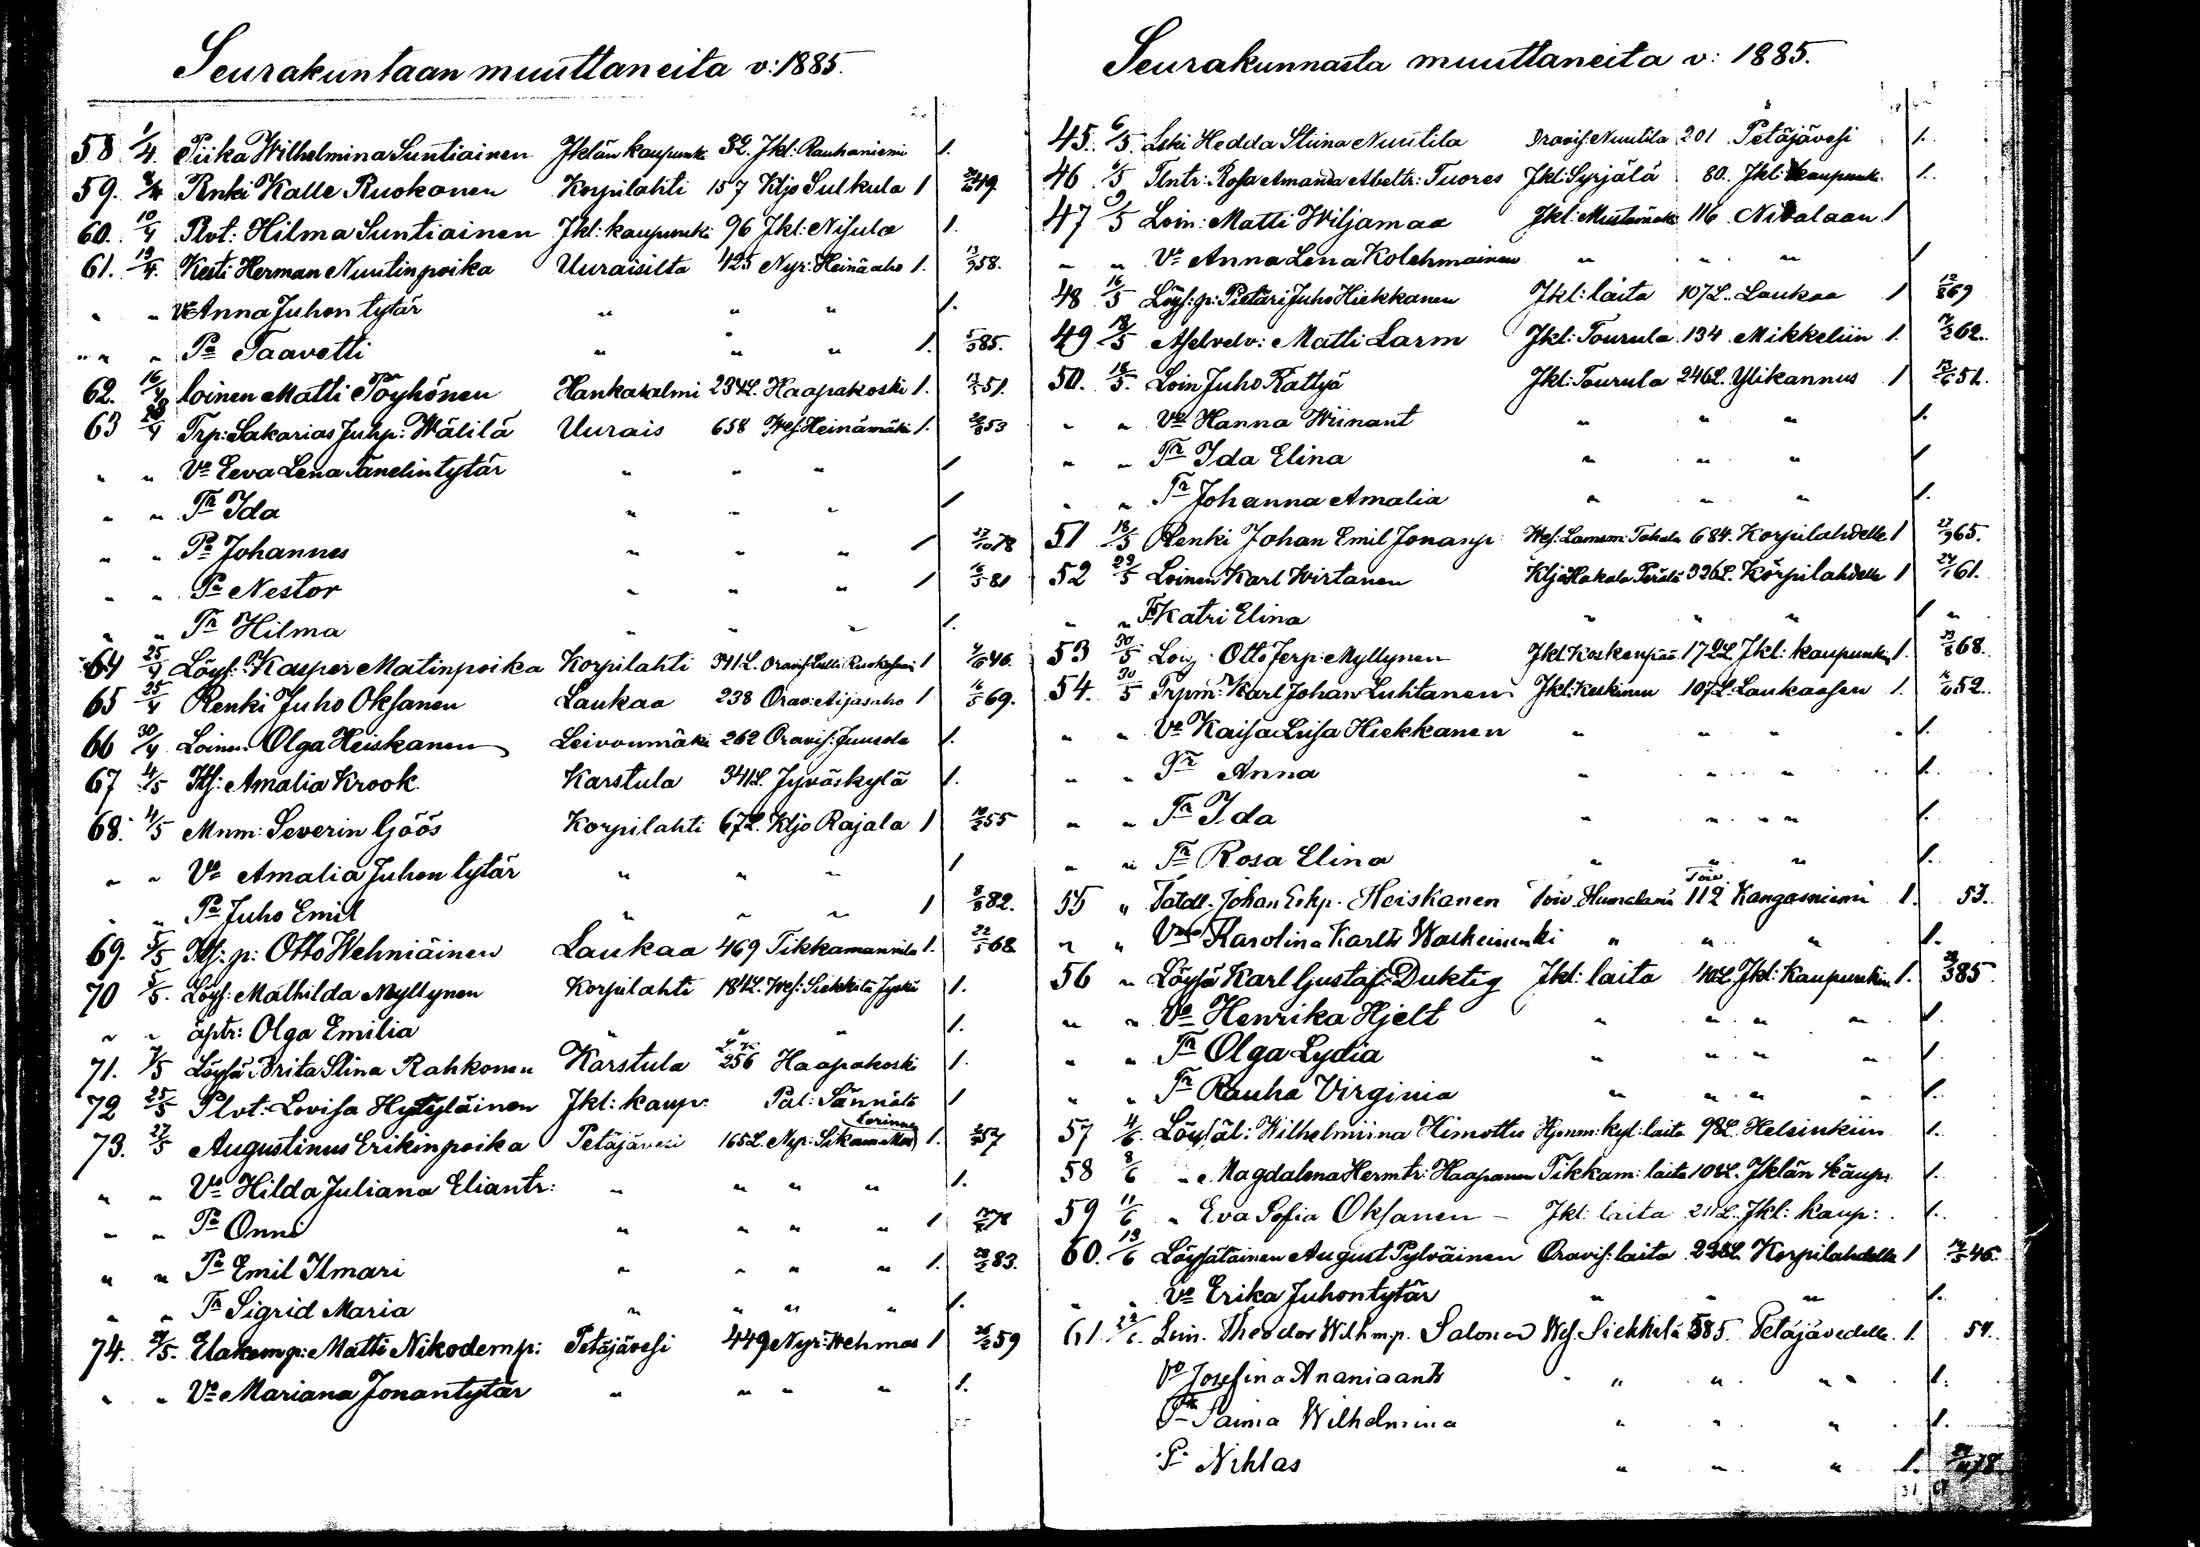 Seurakuntaan muuttaneita v: 1885.
58 1/4. Piika Wilhelmina Suntiainen Jklän kaupunki 32. Jkl: Rauhaniemi 1.
59. 8/4 Rnki Kalle Ruokonen Korpilahti 157 Kljo Sulkula 1 49.
60. 10/4 Plvt: Hilma Suntiainen Jkl: kaupunki 96 Jkl: Nisula 1.
61. 13/4. Kesti Herman Nuutinpoika Uuraisilta 425 Nyr: Heinäaho 1. 13/9 58.
" " Vo Anna Juhon tytär " " " 1.
" " " Pa Taavetti " " " 1. 5/3 85.
62. 16/4 loinen Matti Pöyhönen Hankasalmi 234L. Haapakoski 1. 51.
63 /4 Trp: Sakarias Juhp: Wälilä Uurais 658 Wes: Heinämäki 1. 53
" " Vo Eeva Lena Tanelintytär " " " 1
" " Tr Ida " " " 1
" " Pa Johannes " " " 1 27/10 78
" " Pa Nestor " " " 1 16/5 81
" " Tr Hilma " " " 1.
64 25/4 Löys: Kasper Matinpoika Korpilahti 341L. 1 46.
65 25/4 Renki Juho Oksanen Laukaa 238 Orav: Aijasaho 1 69.
66 30/4 Loinen Olga Heiskanen Leivonmäki 262 Oravis: Juusela 1.
67 4/5 Its: Amalia Krook. Karstula 341L. Jyväskylä 1.
68. 4/5 Mnm: Severin Göös Korpilahti 67L. Kljo Rajala 1 55
" " Vo Amalia Juhon tytär " " " 1
" " Pa Juho Emil " " " 1 8/8 82.
69. 5/5 Its: p: Otto Wehniäinen Laukaa 469 Tikkamannila 1. 22/5 68
70 5/5. Löys: Mathilda Myllynen Korpilahti 184L. Wes: Siekkilä Jyskä 1.
" " äptr: Olga Emilia " " " 1.
71. 7/5 Löysä Brita Stina Rahkonen Karstula 256 Haapakoski 1.
72 25/5 Plvt: Lovisa Hytyläinen Jkl: kaup: Pal: Sännätö 1
73. 27/5 Augustinus Erikinpoika Petäjävesi 165L. Nyr: 1. 57
" " Vo Hilda Juliana Eliantr: " " " " 1.
" " Pa Onni " " " " 1 78
" " Pa Emil Ilmari " " " " 1. 83.
" " Tr Sigrid Maria " " " " 1.
74. /5. Elakemp: Matti Nikodemp: Petäjävesi 449 Nyr: Wehmas 1 59
" " Vo Mariana Jonantytär " " " " 1.
Seurakunnasta muuttaneita v: 1885.
45. 6/5. Leski Hedda Stiina Nuutila Oravis: Nuutila 201 Petäjävesi 1.
46 6/5 Tlntr: Rosa Amanda Abeltr: Tuores Jkl: Syrjälä 80. Jkl: kaupunki 1.
47 9/5 Loin: Matti Wiljamaa Jkl: Mustamäki 116 Nivalaan 1
" " Vo Anna Lena Kolehmainen " " " 1
48 16/5 Löys: p: Pietäri Juho Hiekkanen Jkl: laita 107L. Laukaa 1 12/8 69
49 18/5 Aselvelv: Matti Larm Jkl: Tourula 134 Mikkeliin 1. 62.
50. 18/5. Loin Juho Rättyä Jkl: Tourula 246L. Ylikannus 1 51.
" " Vo Hanna Wiinant " " " 1.
" " Tr Ida Elina " " " 1
" " Tr Johanna Amalia " " " 1.
51 18/5 Renki Johan Emil Jonasp: 684. Korpilahdelle 1 65.
52 29/5 Loinen Karl Wirtanen Kljo Hakola Perälä 326L. Korpilahdelle 1 61.
" " Tr Katri Elina " " " 1 "
53 30/5 Löys: Otto Jerp: Myllynen Jkl: Koskenpää 172L Jkl: kaupunkiin 1. 68.
54. 30/5 Trpm: Karl Johan Luhtanen Jkl: Keskinen 107L. Laukaasen 1. 52.
" " Vo Kaisa Liisa Hiekkanen " " " 1.
" " Tr Anna " " " 1.
" " Tr Ida " " " 1.
" " Tr Rosa Elina " " " 1.
55 " Johan Erkp. Heiskanen Toiv. 112 Kangasniemi 1. 53.
" " Vmo Karolina Karltr " " " 1.
56 " Löysä Karl Gustaf: Duktig Jkl: laita 40L Jkl: Kaupunkiin 1. 85.
" " Vo Henrika Hjelt " " " " 1.
" " Tr Olga Lydia " " " " 1.
" " Tr Rauha Virginia " " " " 1.
57 4/6. Löysäl: Wilhelmiina Himottu 98L. Helsinkiin 1.
58 8/6 " Magdalena Hermtr: Haapanen Tikkam: laita 104L. Jklän kaup: 1.
59 11/6 " Eva Sofia Oksanen – Jkl: laita 211L. Jkl: kaup: 1.
60. 13/6 Löysäläinen August Pylväinen Oravis: laita 222L Korpilahdelle 1 46.
" " Vo Erika Juhontytär " " " 1.
61 22/6. Loin. Theodor Wilhmp. Salonen Wes. Siekkilä 585. Petäjävedelle. 1. 54.
Vo Josefina Ananiaantr " " " 1.
Tr Saima Wilhelmina " " " 1.
P. Niklas " " " 1. 78.